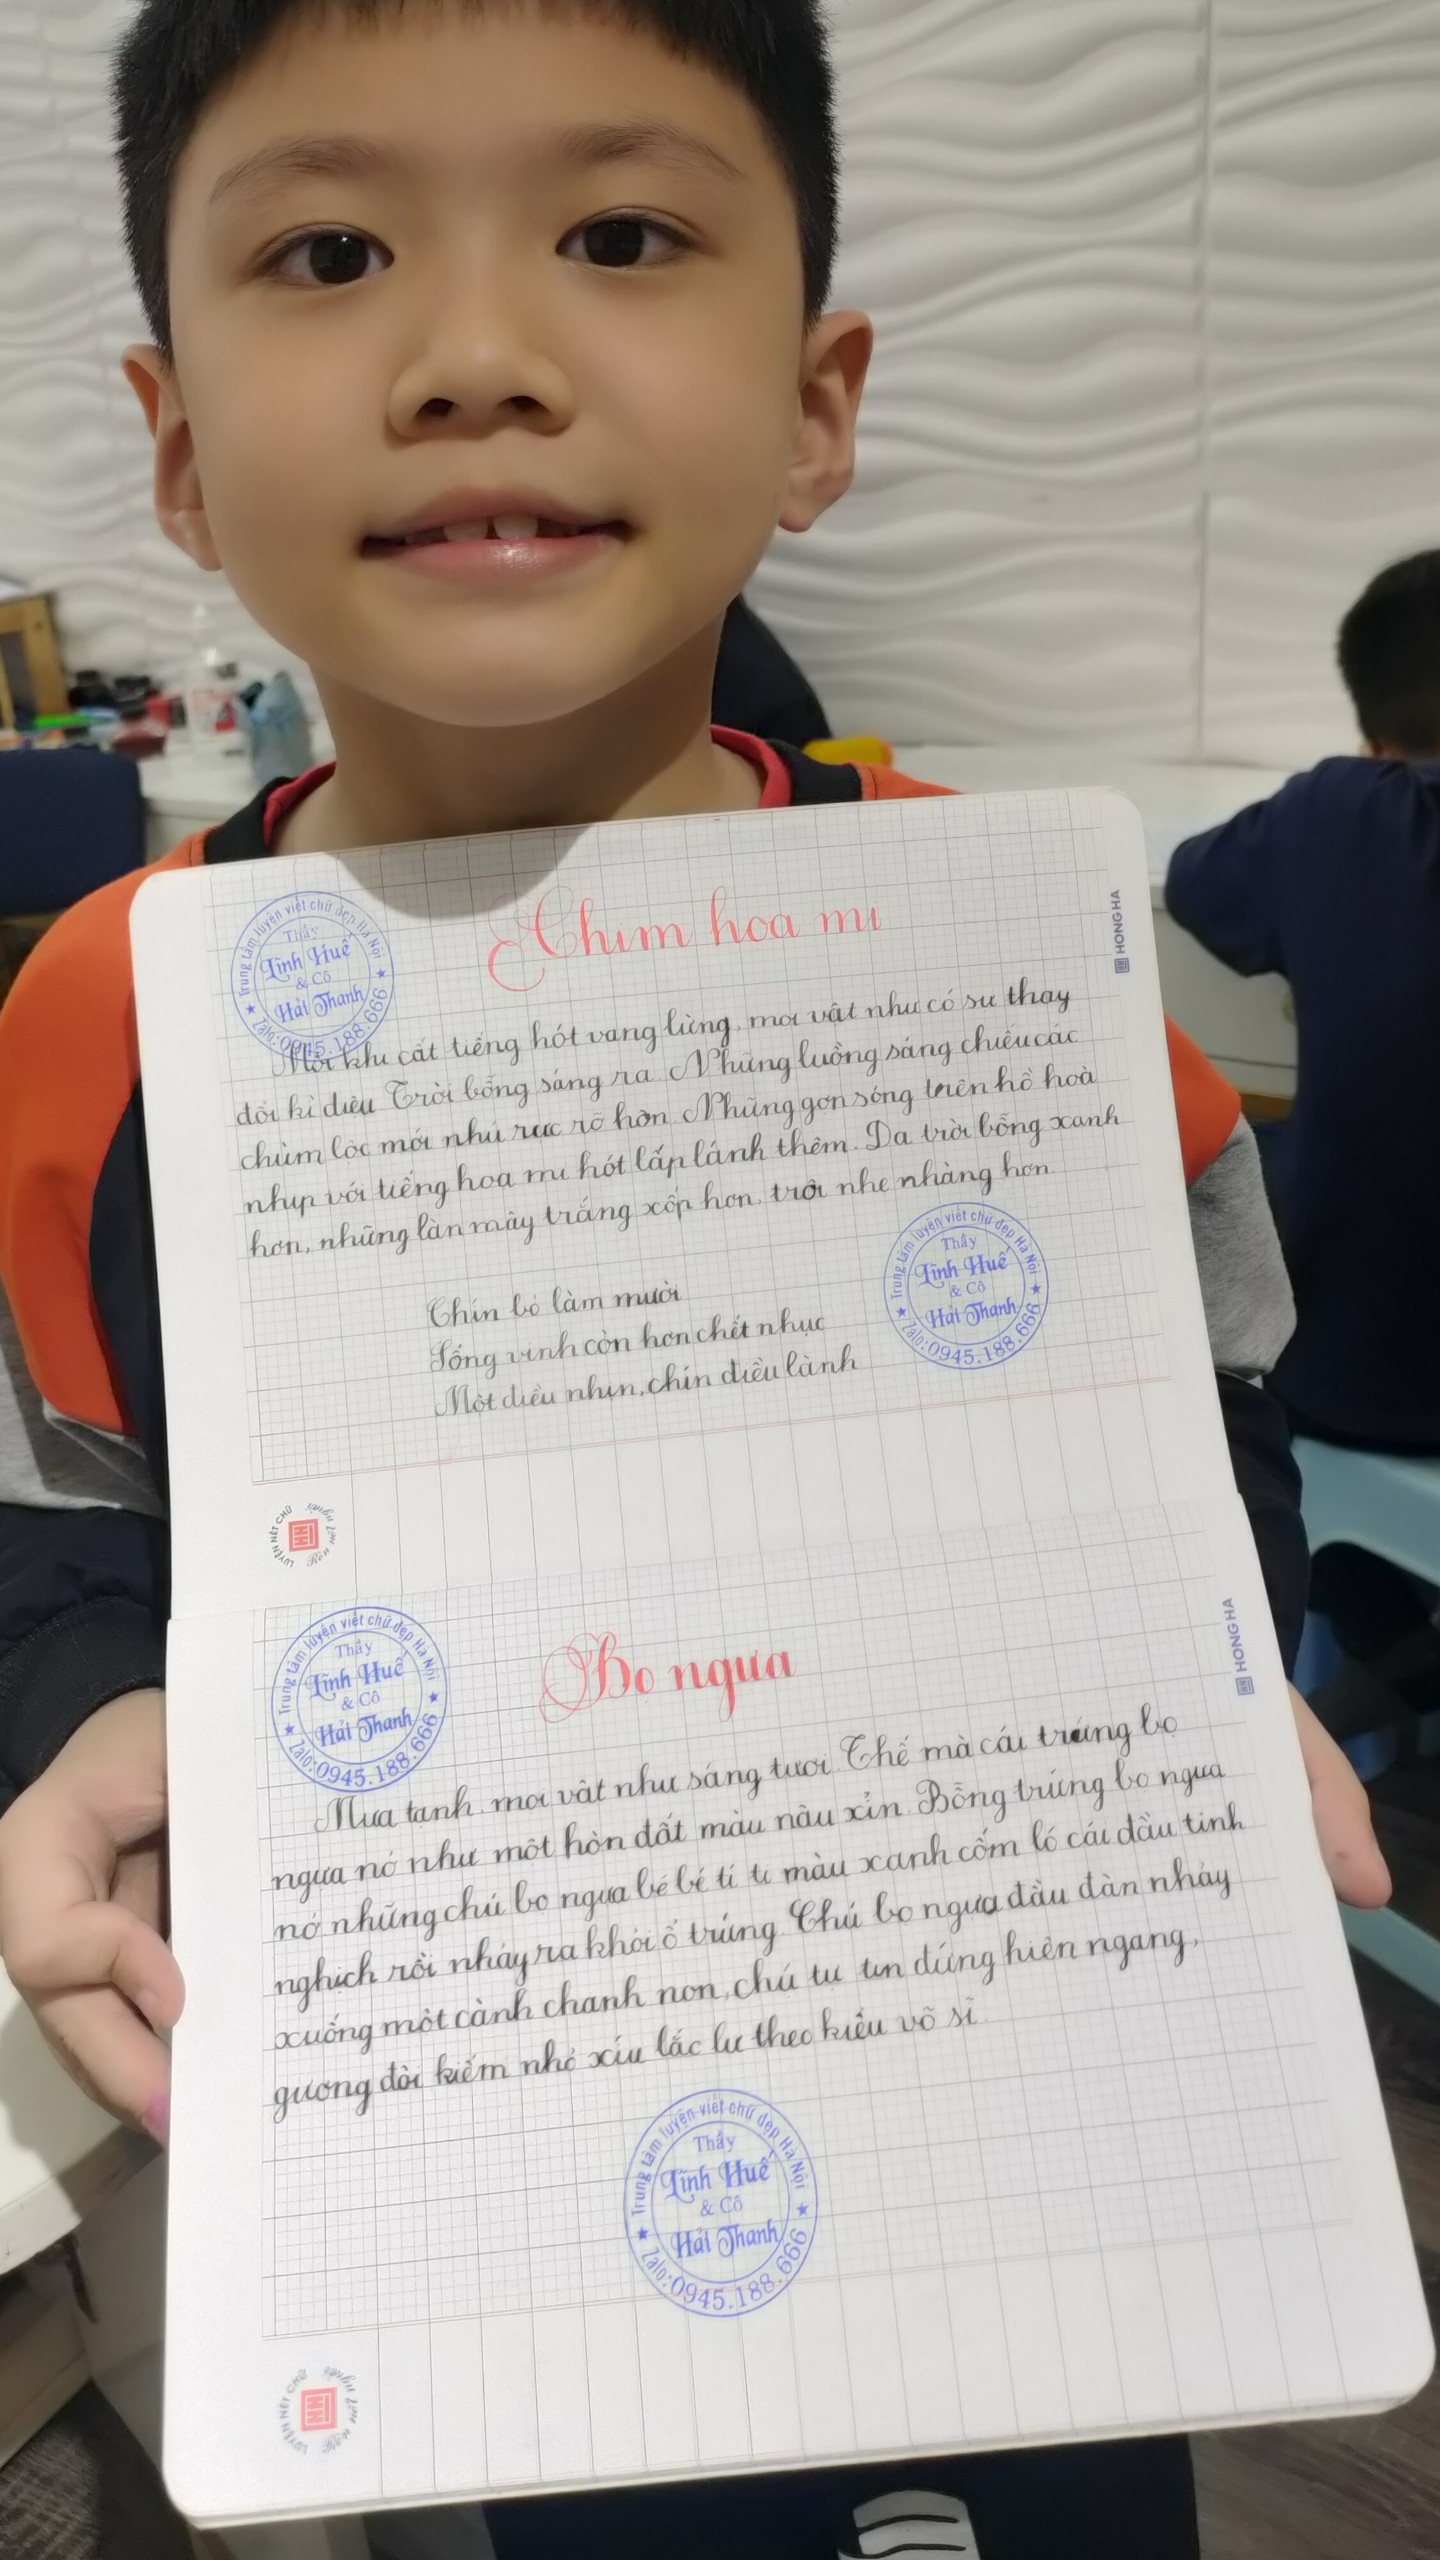 Chim hoa mi
HONG HA
Trung tâm luyện viết chữ đẹp Hà Nội
Thầy
Lĩnh Huế
& Cô
Hải Thanh
Zalo: 0945.188.666
Mỗi khi cất tiếng hót vang lừng, mọi vật như có sự thay
đổi kì diệu Trời bỗng sáng ra. Những luồng sáng chiếu các
chùm lộc mới nhú rực rỡ hơn. Những gợn sóng trên hồ hoà
nhịp với tiếng hoạ mi hót lấp lánh thêm. Da trời bỗng xanh
hơn, những làn mây trắng xốp hơn, trôi nhẹ nhàng hơn.
Chín bỏ làm mười
Sống vinh còn hơn chết nhục
Một điều nhịn, chín điều lành
Trung tâm luyện viết chữ đẹp Hà Nội
Thầy
Lĩnh Huế
& Cô
Hải Thanh
Zalo: 0945.188.666
LUYỆN NÉT CHỮ
Rèn nết người
Bọ ngựa
HONG HA
Trung tâm luyện viết chữ đẹp Hà Nội
Thầy
Lĩnh Huế
& Cô
Hải Thanh
Zalo: 0945.188.666
Mưa tạnh, mọi vật như sáng tươi. Thế mà cái trứng bọ
ngựa nó như một hòn đất màu nâu xỉn. Bỗng trứng bọ ngựa
nở những chú bọ ngựa bé bé tí ti màu xanh cốm ló cái đầu tinh
nghịch rồi nhảy ra khỏi ổ trứng. Chú bọ ngựa đầu đàn nhảy
xuống một cành chanh non, chú tự tin đứng hiên ngang,
gương đôi kiếm nhỏ xíu lắc lư theo kiểu võ sĩ.
Trung tâm luyện viết chữ đẹp Hà Nội
Thầy
Lĩnh Huế
& Cô
Hải Thanh
Zalo: 0945.188.666
LUYỆN NÉT CHỮ
Rèn nết người